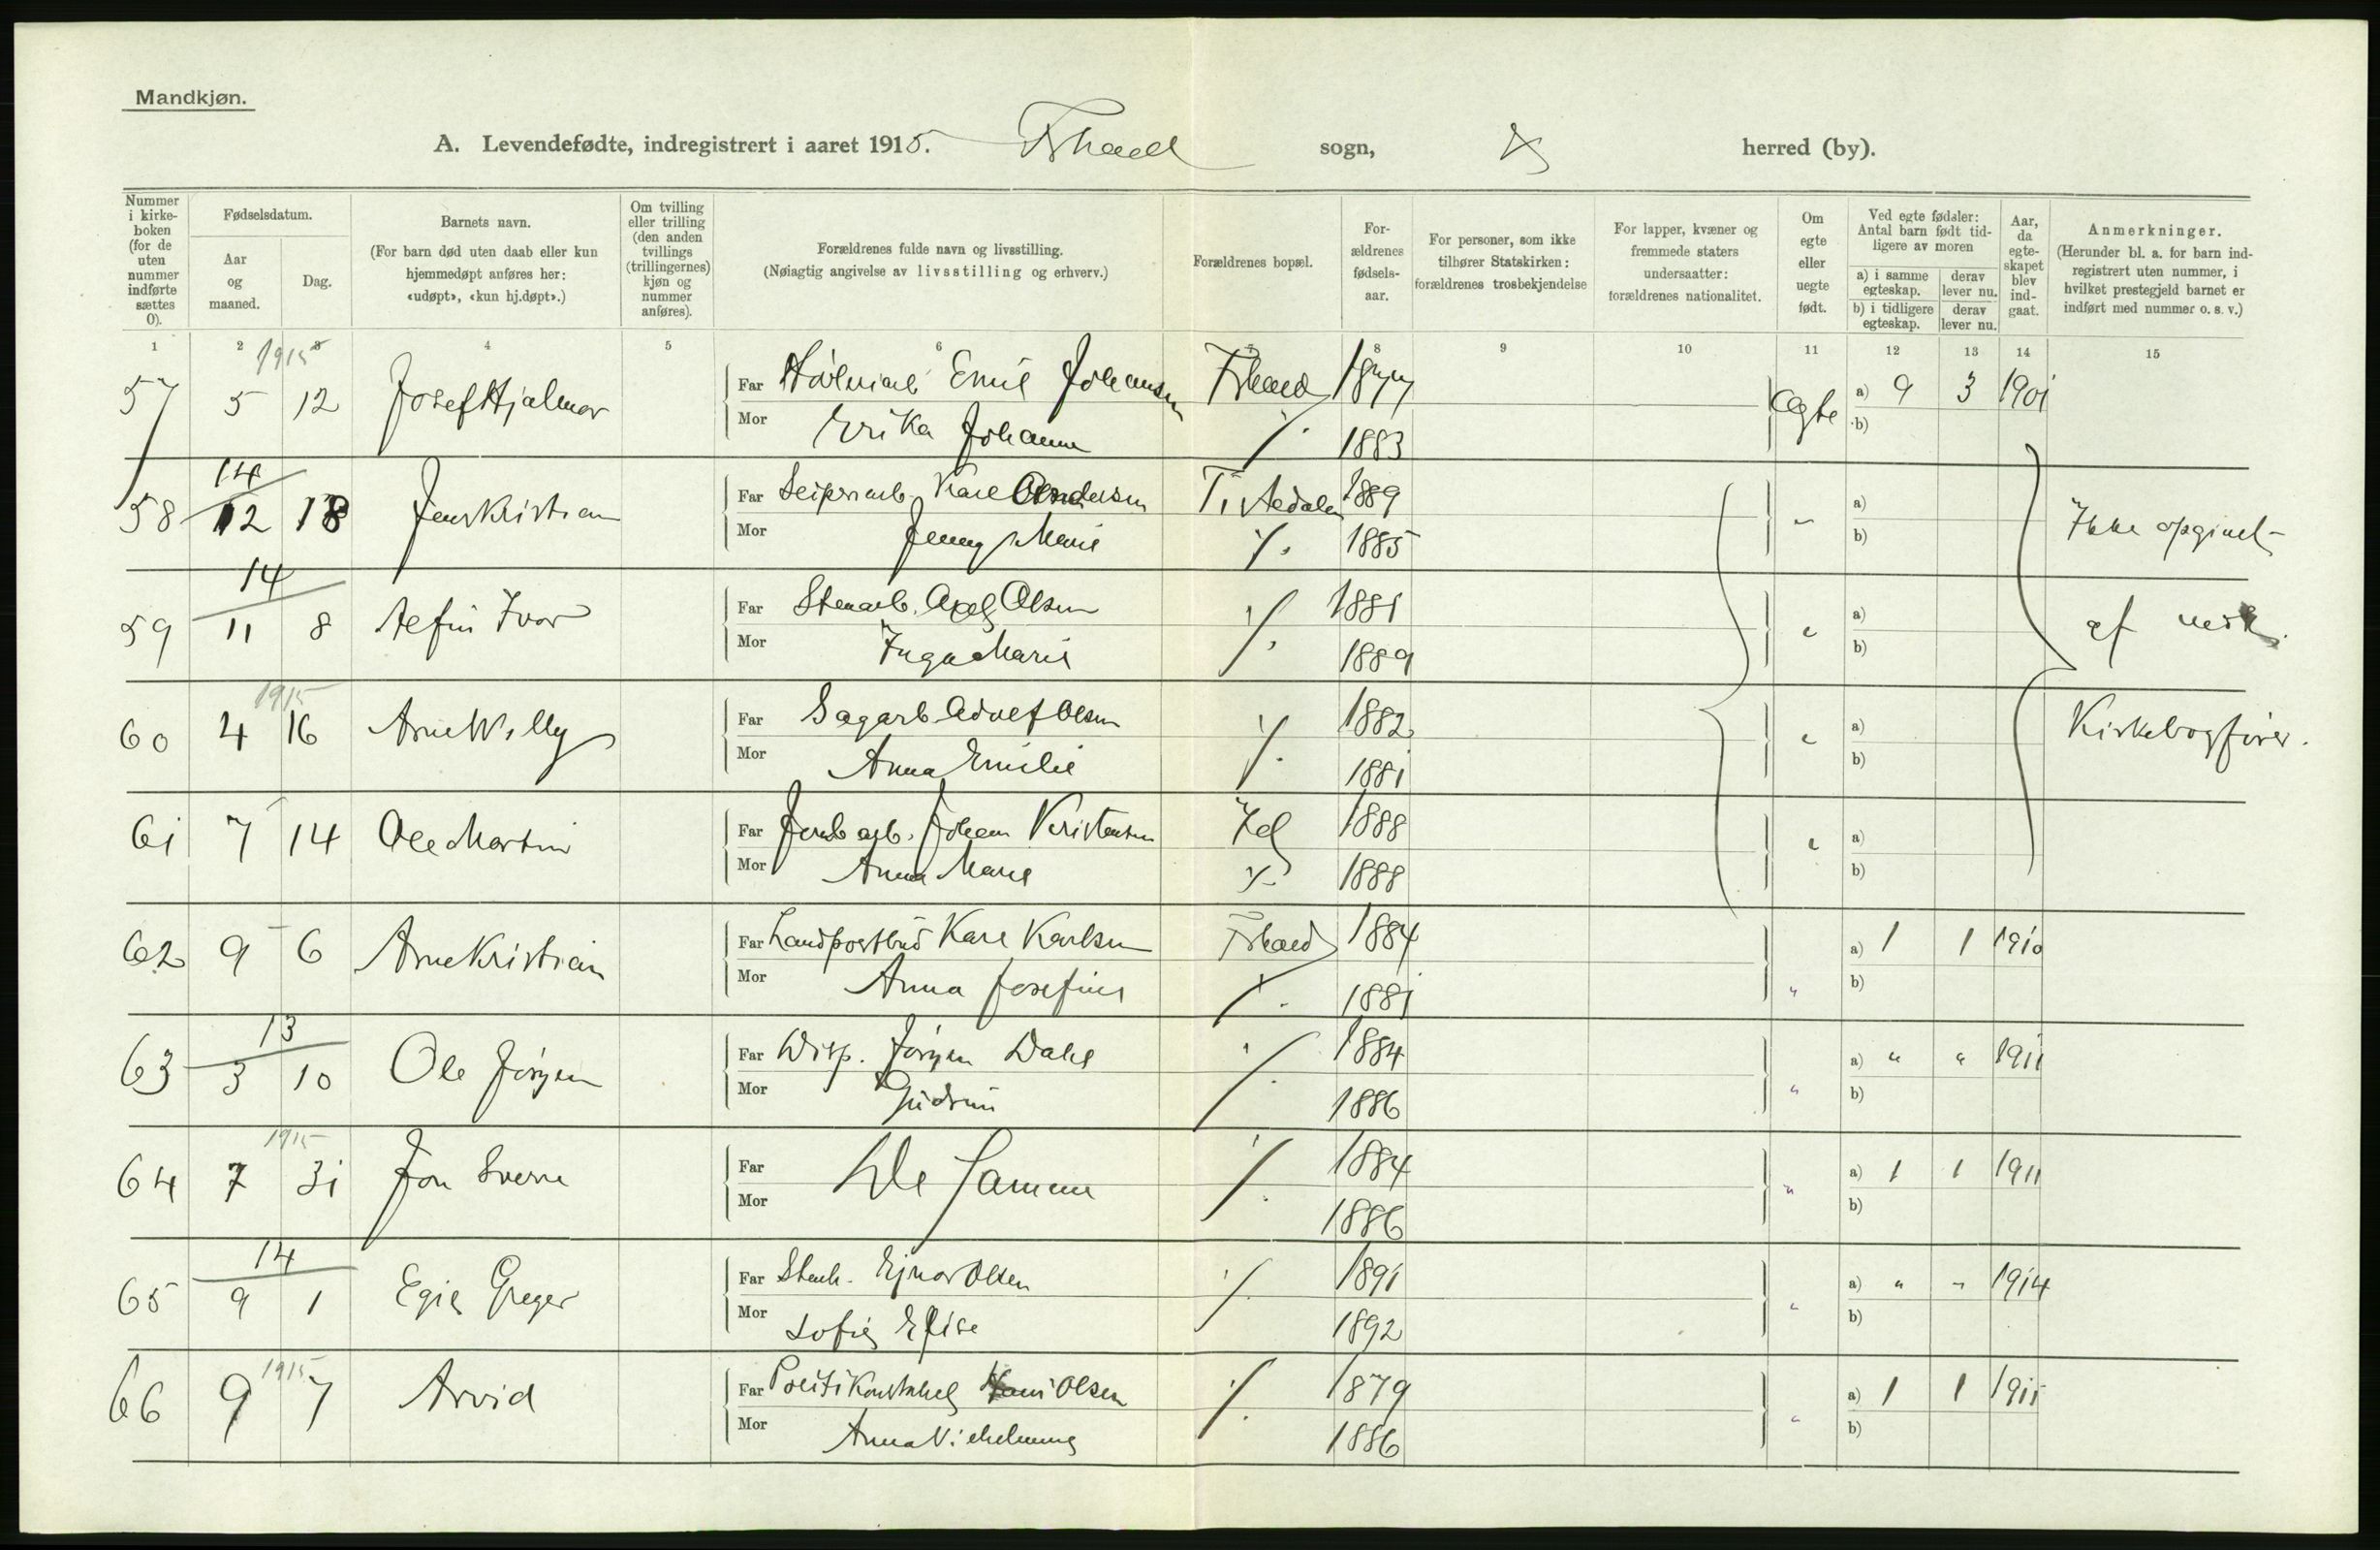 Mandkjøn.
A. Levendefødte, indregistrert i aaret 1915. Fshald sogn, herred (by).
Nummer i kirkeboken (for de uten nummer indførte sættes 0).
Fødselsdatum.
Aar og maaned.
Dag.
Barnets navn.
(For barn død uten daab eller kun hjemmedøpt anføres her: «udøpt», «kun hj.døpt».)
Om tvilling eller trilling (den anden tvillings (trillingernes) kjøn og nummer anføres).
Forældrenes fulde navn og livsstilling.
(Nøiagtig angivelse av livsstilling og erhverv.)
Forældrenes bopæl.
Forældrenes fødselsaar.
For personer, som ikke tilhører Statskirken: forældrenes trosbekjendelse
For lapper, kvæner og fremmede staters undersaatter: forældrenes nationalitet.
Om egte eller uegte født.
Ved egte fødsler: Antal barn født tidligere av moren
a) i samme egteskap. derav lever nu.
b) i tidligere egteskap. derav lever nu.
Aar, da egteskapet blev indgaat.
Anmerkninger.
(Herunder bl. a. for barn indregistrert uten nummer, i hvilket prestegjeld barnet er indført med nummer o. s. v.)
1 2 3 4 5 6 7 8 9 10 11 12 13 14 15
1915
57 5 12 Josef Hjalmar Far Emil Johansen Fshald 1877 Egte a) 9 3 1901
Mor Erika Johanne ./. 1883 b)
14
58 12 18 Jens Kristian Far Karl Andersen Tistedalen 1889 " a) Ikke opgivet
Mor Jenny Marie ./. 1885 b)
14
59 11 8 Alfin Ivar Far Stenarb. Axel Olsen ./. 1881 " a) af vedk.
Mor Inga Marie 1889 b)
1915
60 4 16 Arne Willy Far Sagarb. Adolf Olsen ./. 1882 " a) Kirkebogfører.
Mor Anna Emilie 1881 b)
61 7 14 Ole Martin Far Johan Kristensen Id 1888 " a)
Mor Anna Marie ./. 1888 b)
62 9 6 Arne Kristian Far Landpostbud Karl Karlsen Fshald 1884 " a) 1 1 1910
Mor Anna Josefine ./. 1881 b)
13
63 3 10 Ole Jørgen Far Disp. Jørgen Dahl ./. 1884 " a) " " 1911
Mor Gudrun 1886 b)
1915
64 7 31 Jon Sverre Far De Samme ./. 1884 " a) 1 1 1911
Mor 1886 b)
14
65 9 1 Egil Greger Far Stenh. Ejnar Olsen ./. 1891 " a) " " 1914
Mor Sofie Elise 1892 b)
1915
66 9 7 Arvid Far Politikonstabel Hans Olsen ./. 1879 " a) 1 1 1911
Mor Anna Vilhelmine 1886 b)